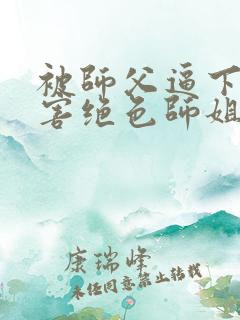 被師父逼下
害绝色師姐
康瑞峰
未经同意禁止转载